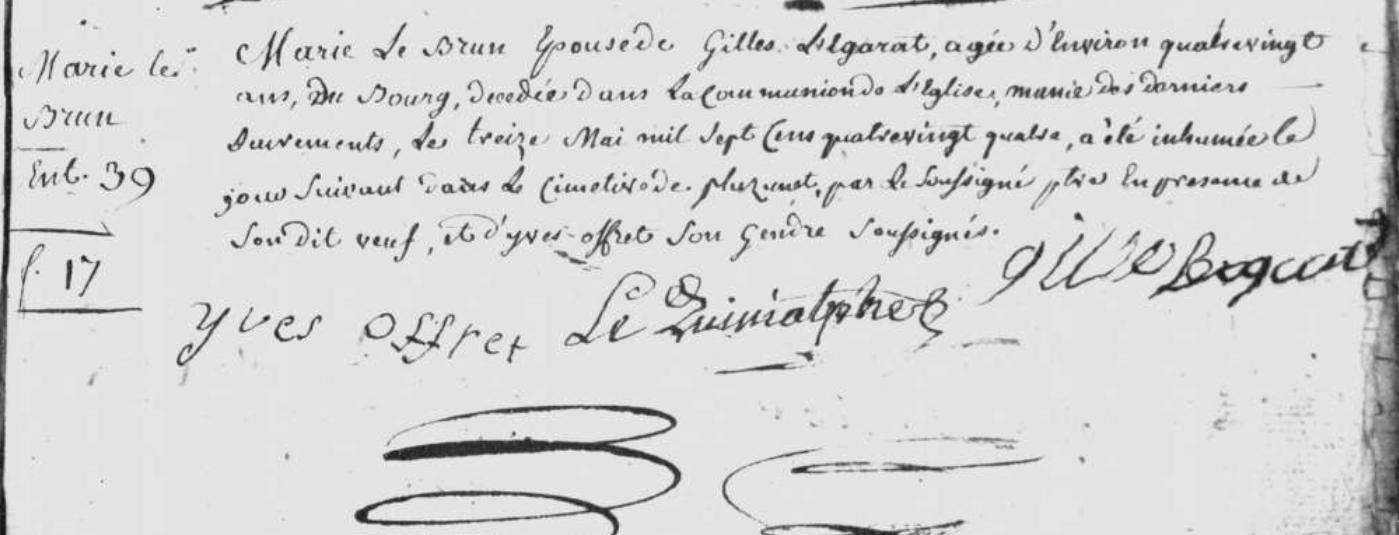 Marie le
Brun
Ent. 39
f. 17
Marie Le Brun Epouse de Gilles agée d'Environ quatrevingt
ans, Du Bourg, decedée dans La Communion de L'Eglise, munie des derniers
Sacrements, Le treize Mai mil Sept Cens quatrevingt quatre, a été inhumée le
jour Suivant dans Le Cimetiere de pluzunet, par Le Soussigné ptre En presence de
Son dit veuf, et d'yves offret Son Gendre Soussignés.
Yves Offret Le